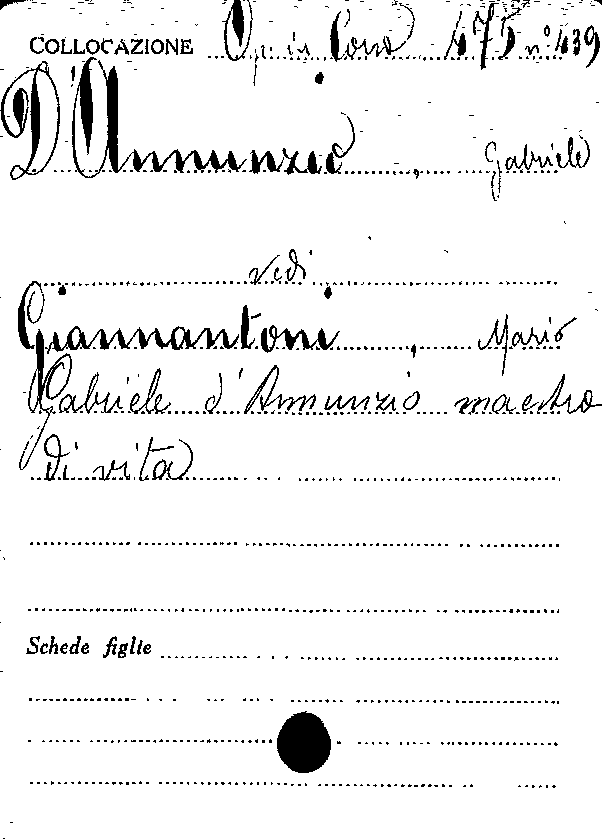 COLLOCAZIONE Op. in Cons 475 n° 439
D'Annunzio, Gabriele
vedi
Giannantoni, Mario
Gabriele d'Annunzio maestro
di vita
Schede figlie